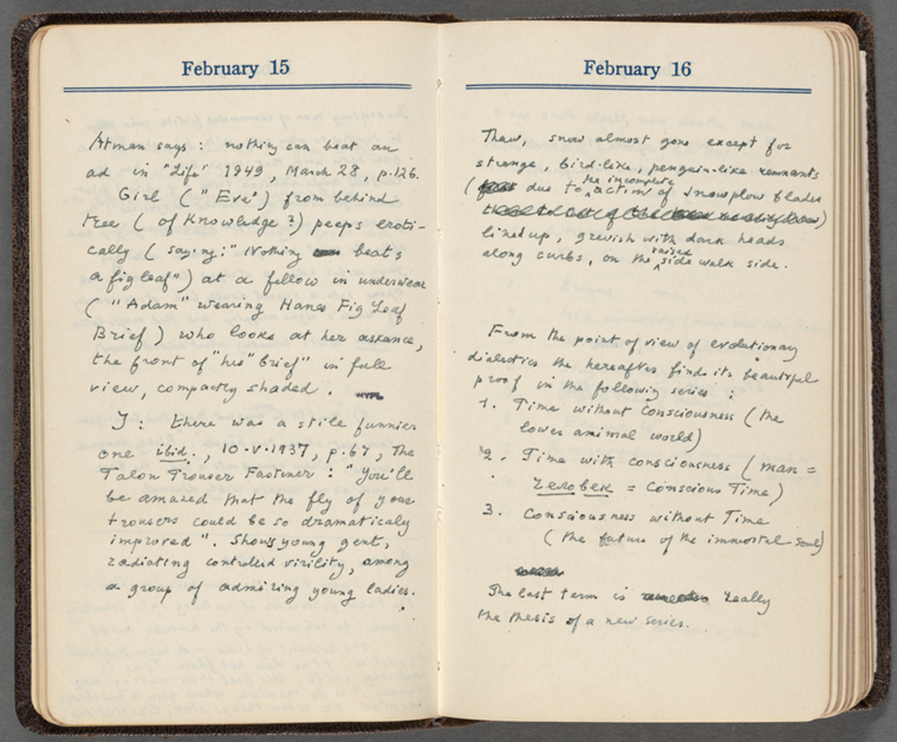 February 15
Atman says : nothing can beat an
ad in "Life" 1949, March 28, p.126.
Girl ("Eve") from behind
tree (of Knowledge?) peeps eroti-
cally (saying: "Nothing beats
a fig leaf") at a fellow in underwear
("Adam" wearing Hanes Fig Leaf
Brief) who looks at her askance,
the front of "his "brief" in full
view, compactly shaded.
NYPL
I : there was a still funnier
one ibid., 10·V·1937, p.67, The
Talon Trouser Fastener : "You'll
be amazed that the fly of your
trousers could be so dramatically
improved". Shows young gent,
radiating controlled virility, among
a group of admiring young ladies.
February 16
Thaw, snow almost gone except for
strange, bird-like, penguin-like remnants
( due to the incomplete action of snowplow blades
)
lined up, greyish with dark heads
along curbs, on the raised side walk side.
From the point of view of evolutionary
dialectics the hereafter finds its beautiful
proof in the following series :
1. Time without Consciousness (the
lower animal world)
2. Time with consciousness (man =
= Conscious Time)
3. Consciousness without Time
(the future of the immortal soul)
The last term is really
the thesis of a new series.